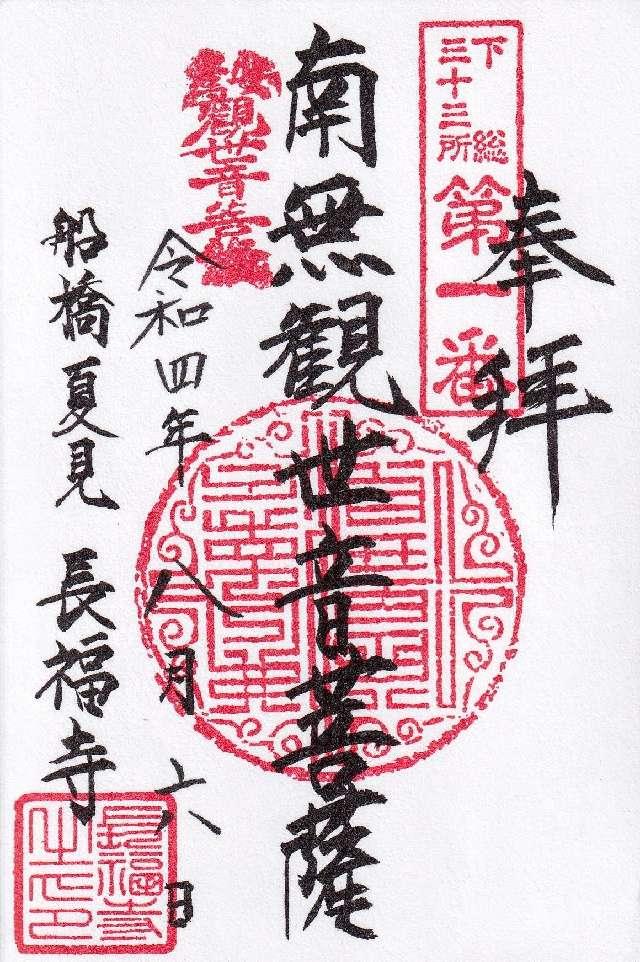 奉拝
下総
三十三所
第一番
南無観世音菩薩
令和四年八月六日
船橋夏見 長福寺
長福寺
之印